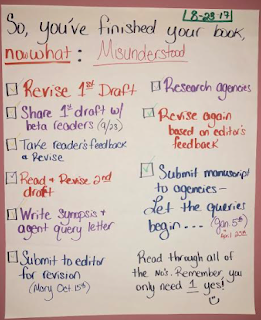 8-23-17
So, you've finished your book,
now what: Misunderstood
Revise 1st Draft
Share 1st draft w/
beta readers (9/23)
Take reader's feedback
& Revise
Read & Revise 2nd
draft
Write synopsis +
agent query letter
Submit to editor
for revision
(Mary Oct. 15th)
Research agencies
Revise again
based on editor's
feedback
Submit manuscript
to agencies -
Let the queries
begin... (Jan 5th)
Read through all of
the No's. Remember, you
only need 1 yes!